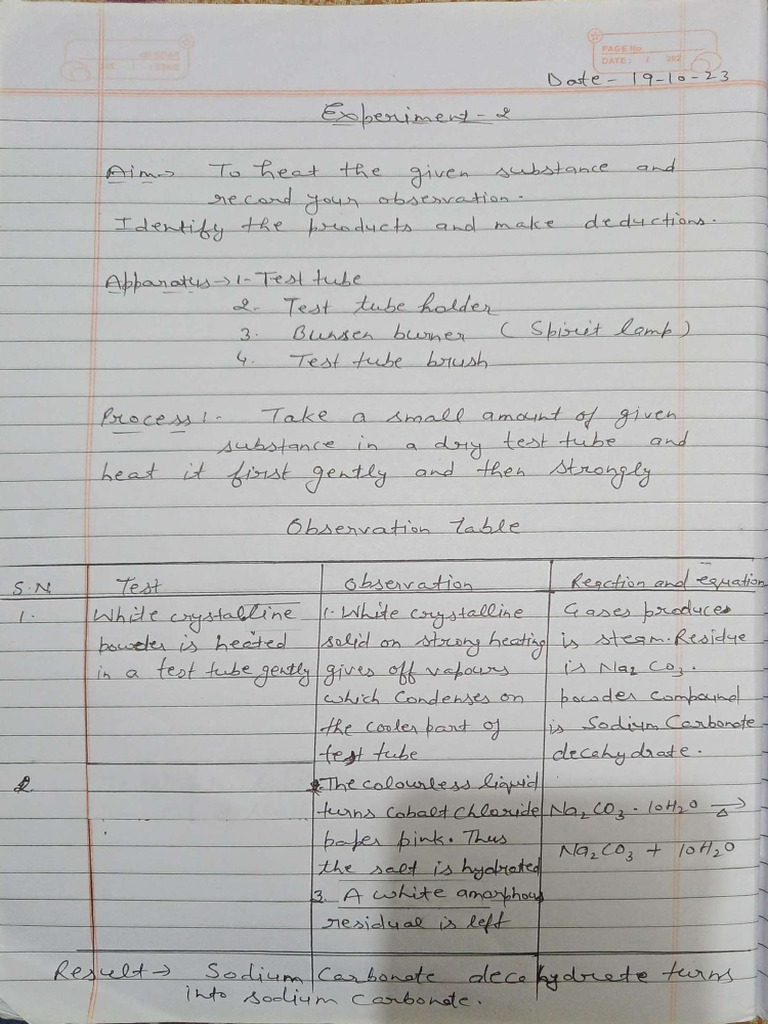 PAGE No.
DATE: / 202
Date - 19-10-23
Experiment - 2
Aim → To heat the given substance and
record your observation.
Identify the products and make deductions.
Apparatus → 1- Test tube
2. Test tube holder
3. Bunsen burner (Spirit lamp)
4. Test tube brush
Process 1.- Take a small amount of given
substance in a dry test tube and
heat it first gently and then strongly
Observation Table
S.N Test Observation Reaction and equation
1. White crystalline
powder is heated
in a test tube gently
1. White crystalline
solid on strong heating
gives off vapours
which condenses on
the cooler part of
test tube
Gases produces
is steam. Residue
is Na2 CO3.
powder compound
is Sodium Carbonate
decahydrate.
2
2. The colourless liquid
turns cobalt chloride
paper pink. Thus
the salt is hydrated
3. A white amorphous
residual is left
Na2CO3 · 10H2O →Δ
Na2CO3 + 10H2O
Result → Sodium Carbonate decahydrate turns
into sodium carbonate.